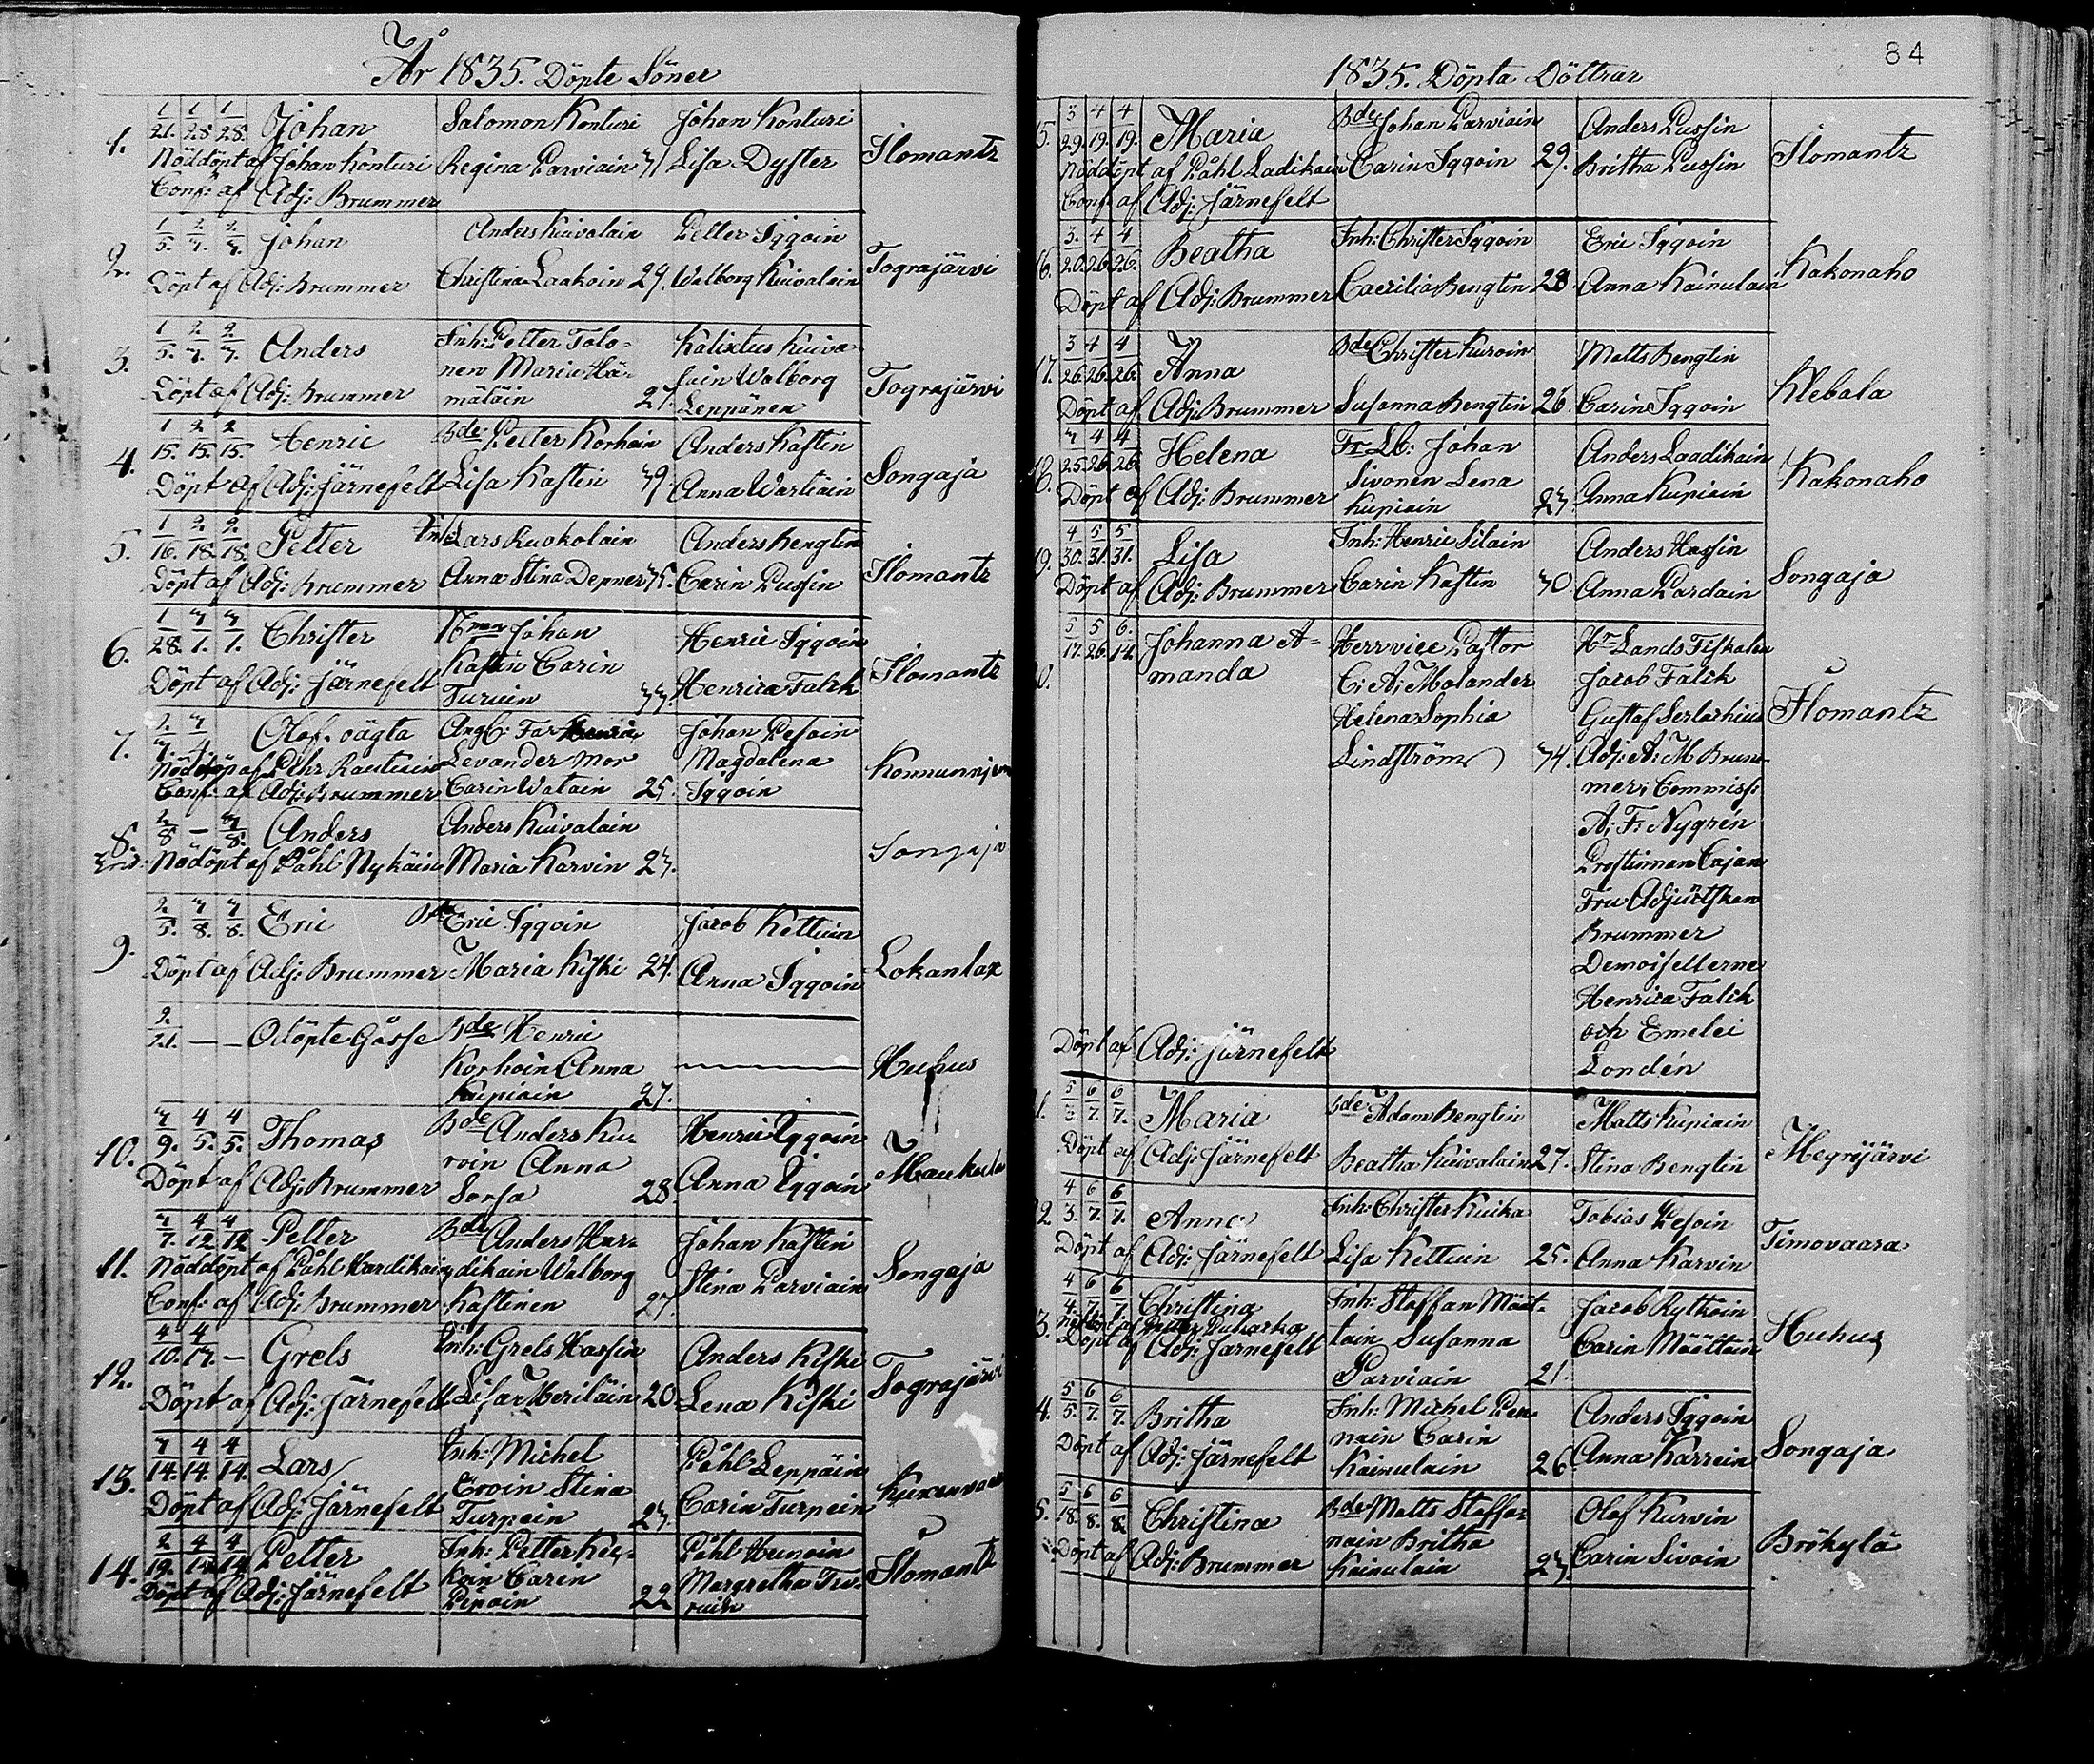 År 1835. Döpte Söner
1. 1/21. 1/28. 1/28. Johan Salomon Konturi Johan Konturi Ilomantz
Nöddöpt af Johan Konturi Regina Parviain 31 Lisa Dyster
Conf: af Adj: Brummer
2. 1/5. 2/7. 2/7. Johan Anders Kuivalain Petter Iggoin Tograjärvi
Döpt af Adj: Brummer Christina Laakoin 29. Walborg Kuivalain
3. 1/5. 2/7. 2/7. Anders Inh: Petter Tolo- Kalixtus Kuiva- Tograjärvi
nen Maria Hä- lain Walborg
Döpt af Adj: Brummer mäläin 27. Leppänen
4. 1/15. 2/15. 2/15. Henric Bde Petter Korhoin Anders Kastin Songaja
Döpt af Adj: Järnefelt Lisa Kastin 39. Anna Wartiain
5. 1/16. 2/18. 2/18. Petter Inh: Lars Ruokolain Anders Bengtin Ilomantz
Döpt af Adj: Brummer Anna Stina Depner 35. Carin Pussin
6. 1/28. 3/1. 3/1. Christer Johan Henric Iggoin Ilomantz
Kastin Carin
Döpt af Adj: Järnefelt Turuin 33. Henrica Falck
7. Olof. oägta Angb: Far Johan Pesoin
Nöddöpt af Pehr Rautiain Levander Mor Magdalena
Conf: af Adj: Brummer Carin Watain 25. Iggoin
8. 2/8 — 3/8. Anders Anders Kuivalain
Nödöpt af Påhl Nykäin Maria Karvin 23.
9. 2/5. 3/8. 3/8. Eric Eric Iggoin Jacob Kettuin Lokanlax
Döpt af Adj: Brummer Maria Kiski 24. Anna Iggoin
2/21. — — Odöpte Gosse Bde Henric Huhus
Korhoin Anna
Kupiain 27.
10. 3/9. 4/5. 4/5. Thomas Bde Anders Kur- Henric Iggoin Maukula
voin Anna
Döpt af Adj: Brummer Sorsa 28 Anna Iggoin
11. 3/7. 4/12 4/12 Petter Bde Anders Har- Johan Kastin Songaja
Nöddöpt af Påhl Hardikain dikain Walborg Stina Parviain
Conf: af Adj: Brummer Kastinen 27.
12. 4/10. 4/17. — Grels Inh: Grels Hassin Anders Kiski Tograjärvi
Döpt af Adj: Järnefelt Lisa Meriläin 20. Lena Kiski
13. 3/14. 4/14. 4/14. Lars Inh: Michel Påhl Leppäin
Eroin Stina
Döpt af Adj: Järnefelt Turpein 23. Carin Turpein
14. 2/19. 4/14 4/14 Petter Inh: Petter Kuk- Påhl Hunoin Ilomantz
kan Carin Margretha Tur-
Döpt af Adj: Järnefelt 22 ruin
84
1835. Döpta Döttrar
5. 3/29. 4/19. 4/19. Maria Bde Johan Parviain Anders Pussin Ilomantz
Nöddöpt af Påhl Ladikain Carin Iggoin 29. Britha Pussin
Conf: af Adj: Järnefelt
6. 3/20. 4/26. 4/26. Beatha Inh: Christer Iggoin Eric Iggoin Kakonaho
Döpt af Adj: Brummer Caecilia Bengtin 28. Anna Kainulain
17. 3/26. 4/26. 4/26. Anna Bde Christer Kuroin Matts Bengtin Klebala
Döpt af Adj: Brummer Susanna Bengtin 26. Carin Iggoin
8. 3/25. 4/26. 4/26. Helena Johan Anders Laadikain Kakonaho
Sivonen Lena
Döpt af Adj: Brummer Kupiain 23. Anna Kupiain
9. 4/30. 5/31. 5/31. Lisa Inh: Henric Silain Anders Hassin Songaja
Döpt af Adj: Brummer Carin Kastin 30. Anna Pardain
0. 5/17. 5/26. 6/14. Johanna A- Herr vice Pastor Hr Lands Fiskalen Ilomantz
manda C: A: Molander Jacob Falck
Helena Sophia Gustaf Serlachius
Lindström 34. Adj: A: M Brum-
mer; Commiss:
A; F: Nygrén
Prostinnan Cajan
Fru Adjuntskan
Brummer
Demoisellerne
Henrica Falck
och Emelei
Döpt af Adj: Järnefelt Londén
1. 5/3. 6/7. 6/7. Maria Bde Adam Bengtin Matts Kupiain Megrijärvi
Döpt af Adj: Järnefelt Beatha Kuivalain 27. Stina Bengtin
2. 4/3. 6/7. 6/7. Anna Inh: Christer Kuika Tobias Pesoin Timovaara
Döpt af Adj: Järnefelt Lisa Kettuin 25. Anna Karvin
3. 4/4. 6/7. 6/7 Christina Inh: Staffan Mäat- Jacob Rytkoin Huhus
Döpt af Adj: Järnefelt tain Susanna Carin Määttain
Parviain 21.
4. 5/5. 6/7. 6/7. Britha Inh: Michel Pen- Anders Iggoin Songaja
nain Carin
Döpt af Adj: Järnefelt Kainulain 26. Anna Karvein
5. 5/18. 6/8. 6/8. Christina Bde Matts Staffa- Olof Kurvin Brökylä
nain Britha
Döpt af Adj: Brummer Kainulain 23. Carin Sivoin